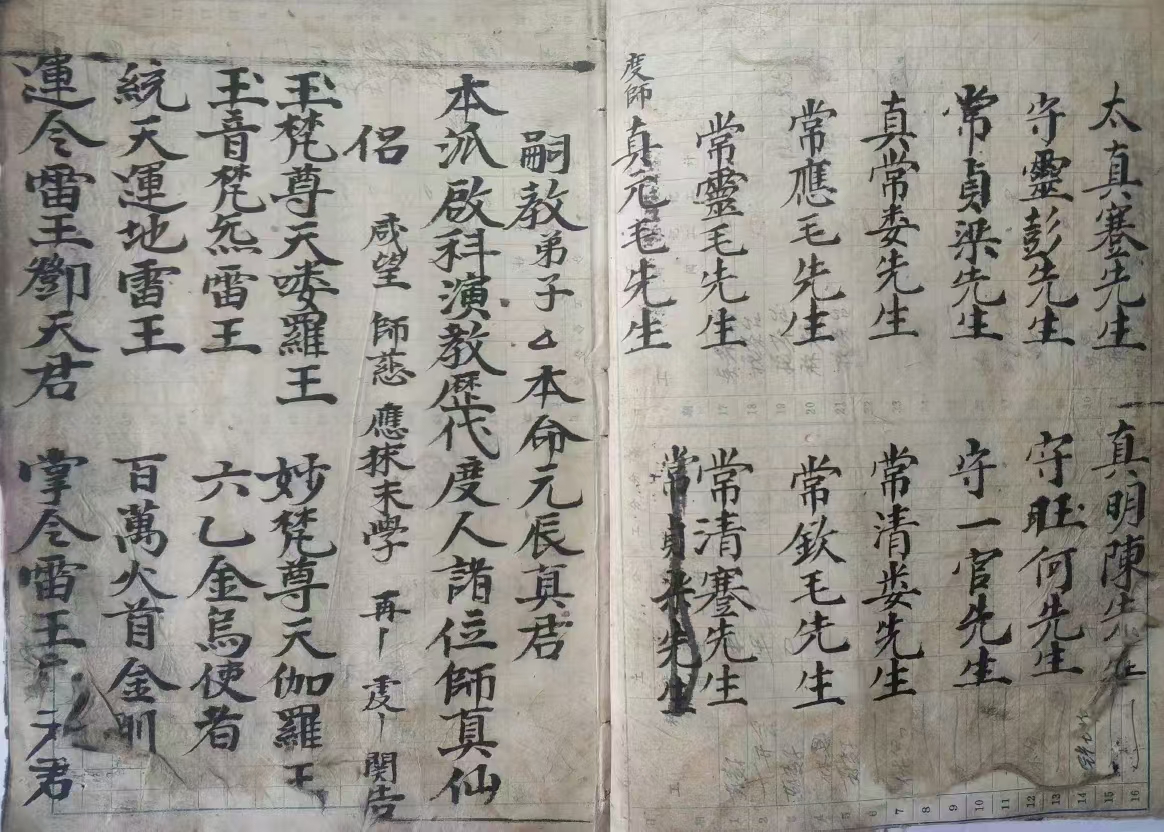 太真蹇先生　真明陳先生
守靈彭先生　守旺何先生
常貞梁先生　守一官先生
真常娄先生　常清娄先生
常應毛先生　常欽毛先生
常靈毛先生　常清蹇先生
度師　真元毛先生　常貞梁先生
嗣教弟子厶本命元辰真君
本派啟科演教歷代度人諸位師真仙
侶　咸望　師慈　應抹末學　再　虔　関告
玉梵尊天喽羅王　妙梵尊天伽羅王
玉音梵炁雷王　六乙金烏使者
統天運地雷王　百萬火首金刖
運令雷王鄧天君　掌令雷王天君